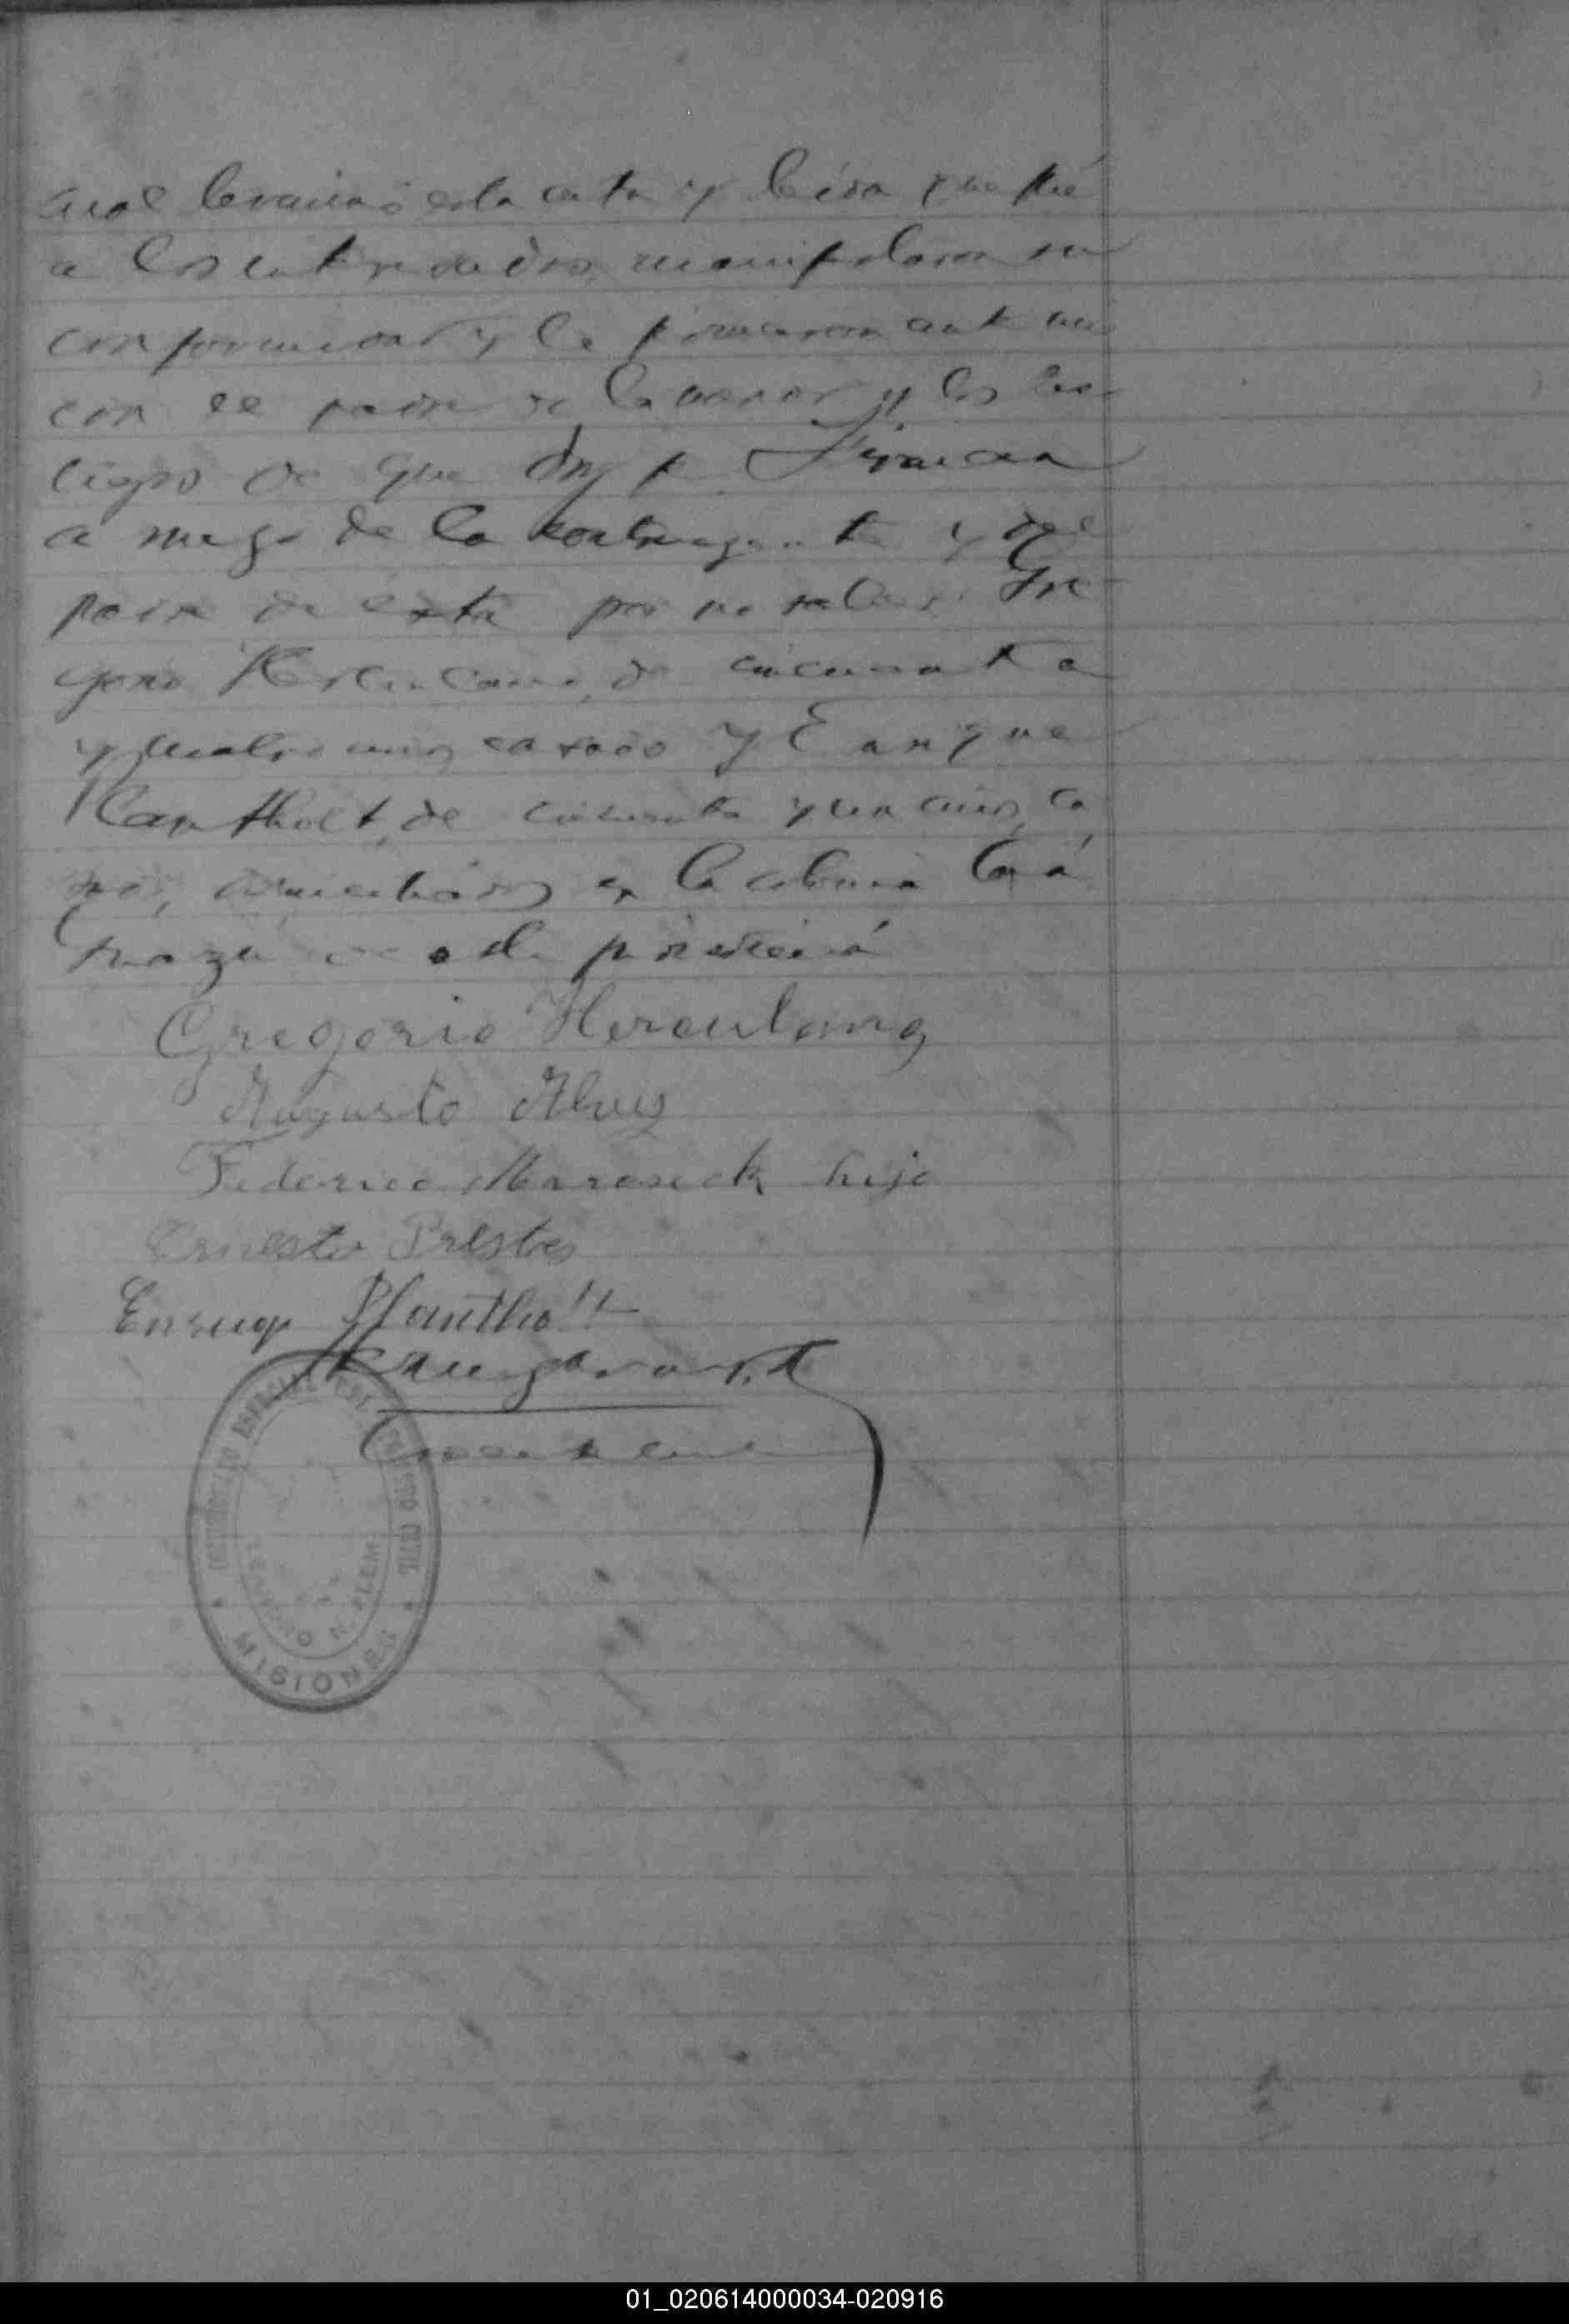 cual levanto esta acta y leida que fué
a los interesados, manifestaron su
conformidad y la firmaron ante mi
con el padre de la menor y los tes-
tigos de que doy f. Firman
a ruego de la contrayente y del
padre de esta por no saber: Gre-
gorio Herculano, de cincuenta
y cuatro años casado y Enrique
Kantholt, de cincuenta y un años, ca
sado, domiciliados en la colonia
de esta jurisdicción
Gregorio Herculano
Augusto Alves
Federico Maraseck hijo
Ernesto Prestes
Enrique
REGISTRO CIVIL
LEANDRO N. ALEM
MISIONES
01_020614000034-020916